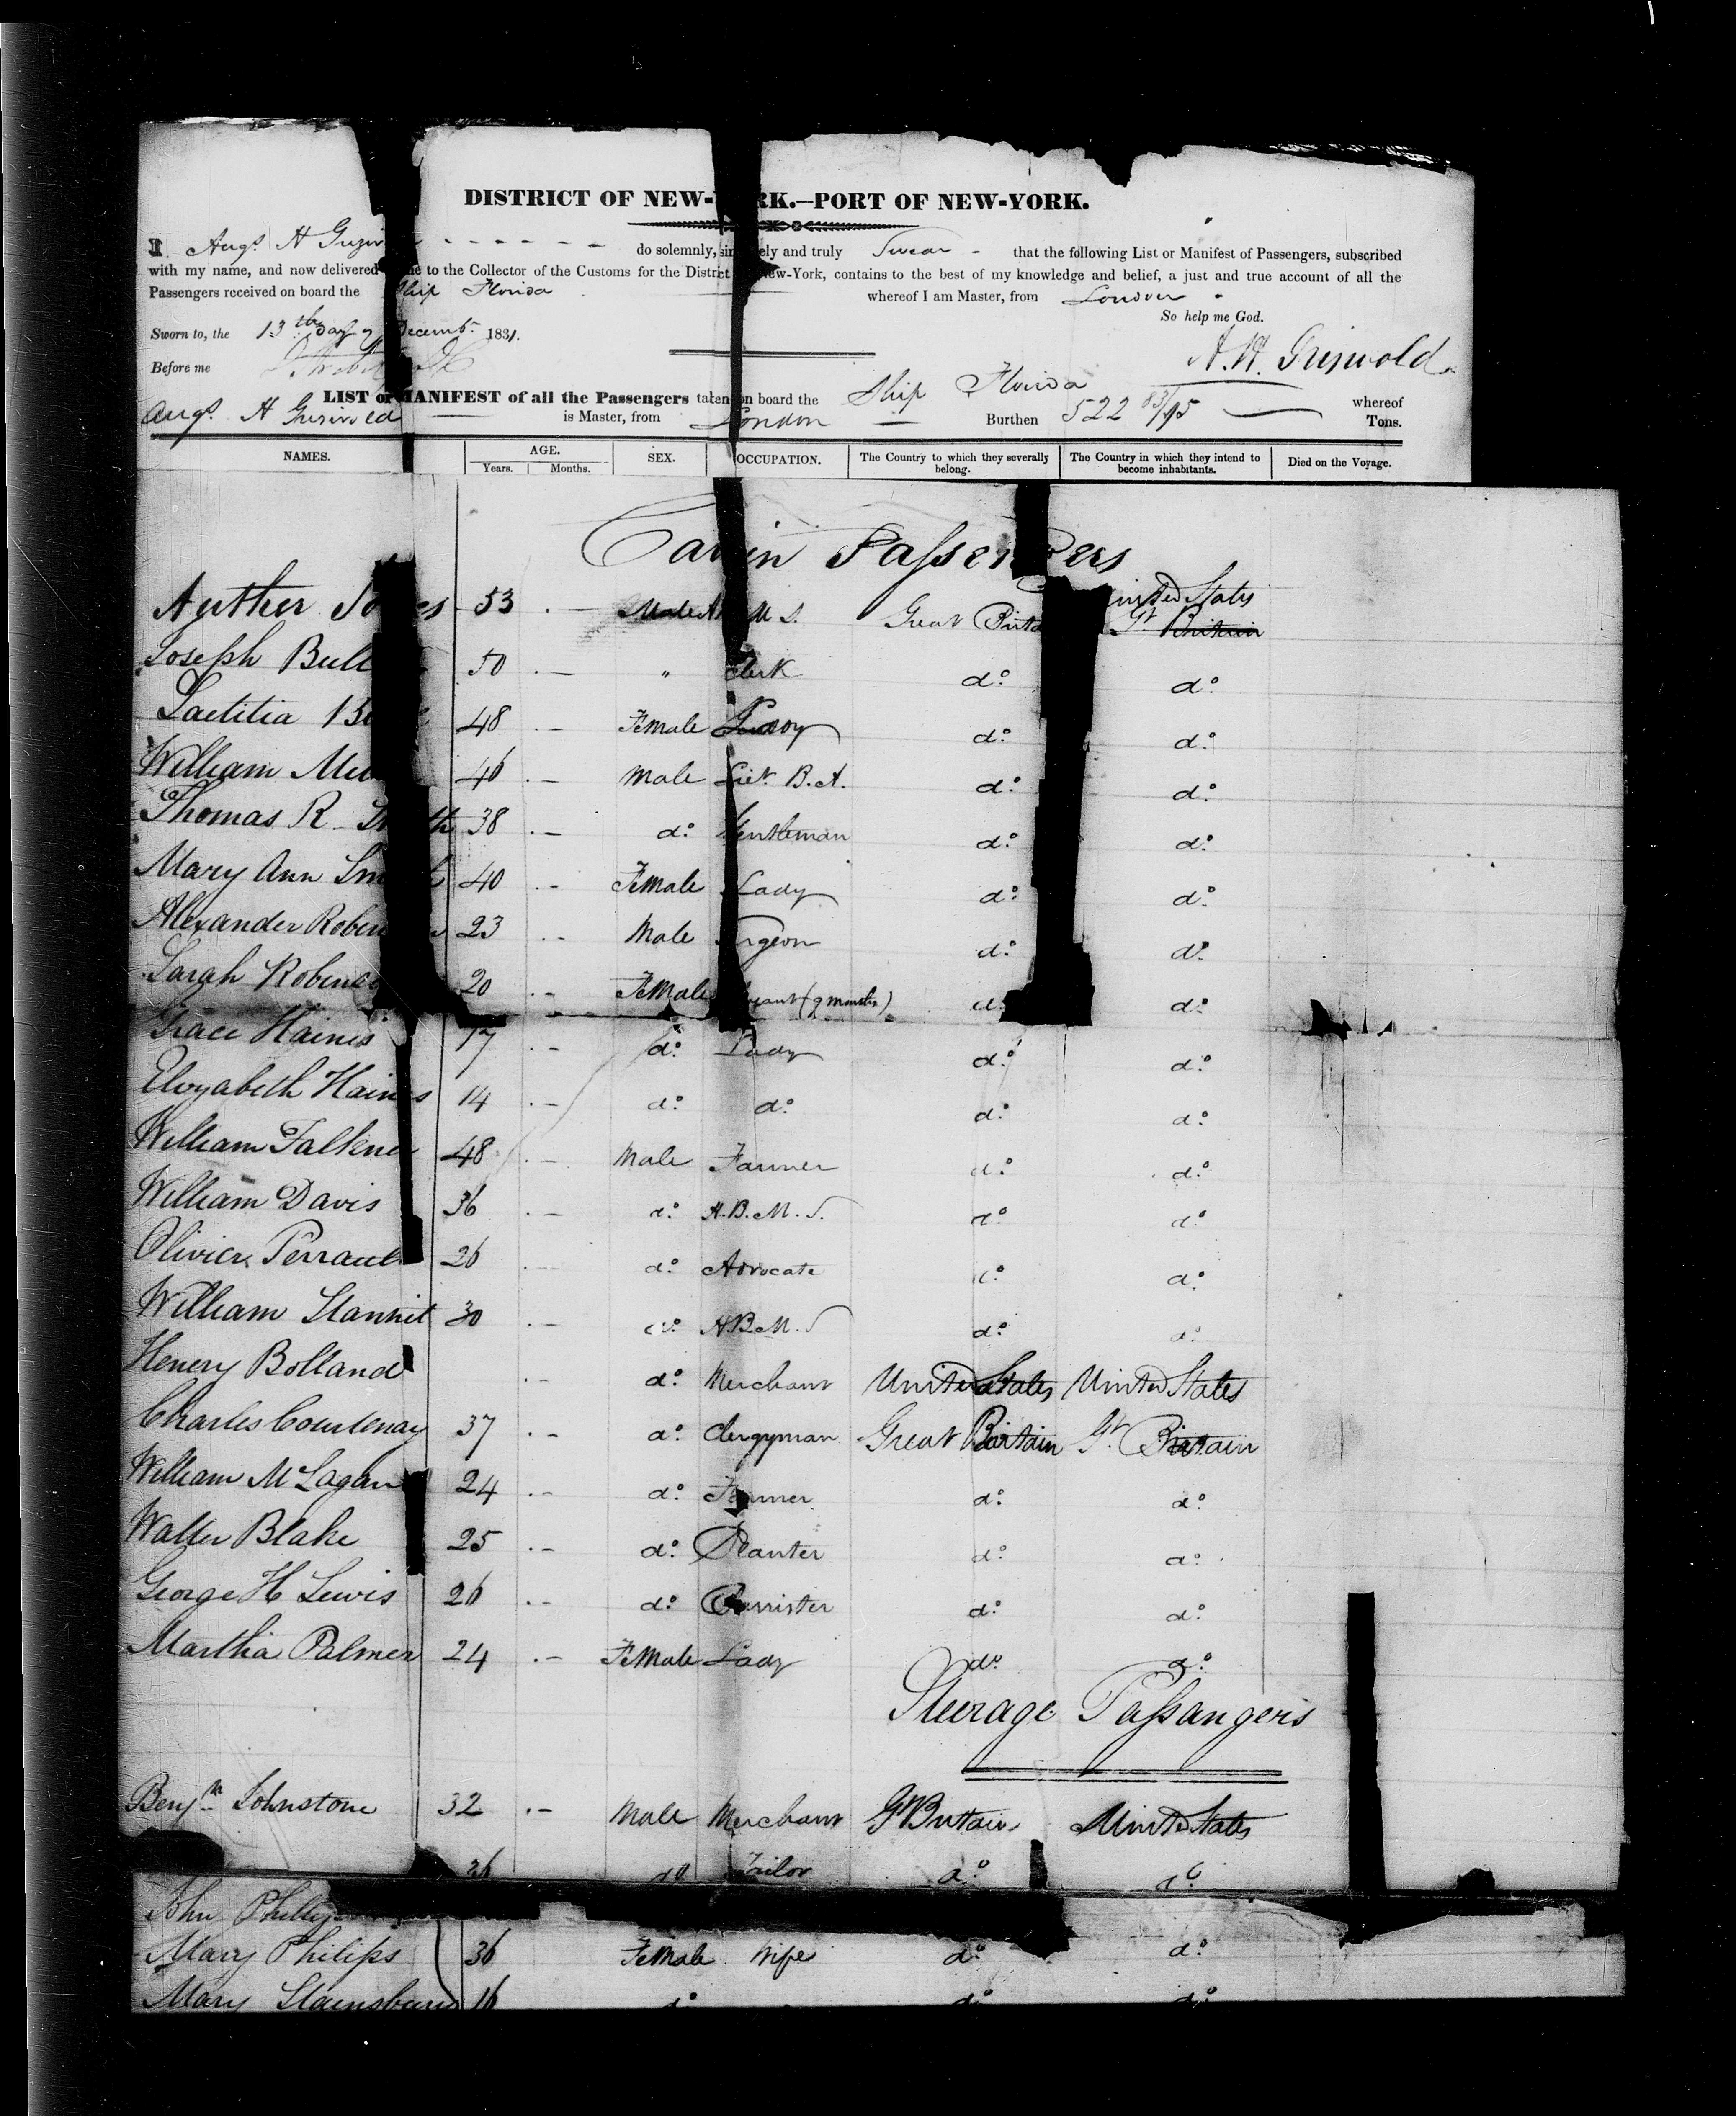 DISTRICT OF NEW- RK.—PORT OF NEW-YORK.
I Augs. H do solemnly, ely and truly Swear - that the following List or Manifest of Passengers, subscribed
with my name, and now delivered to the Collector of the Customs for the District ew-York, contains to the best of my knowledge and belief, a just and true account of all the
Passengers received on board the Ship Florida whereof I am Master, from London -
So help me God.
Sworn to, the 13th Day of Decembr 1831.
Before me
A. H. Griswold
LIST or MANIFEST of all the Passengers taken on board the Ship Florida whereof
Augs. H Griswold is Master, from London Burthen 522 83/95 Tons.
NAMES. AGE. SEX. OCCUPATION. The Country to which they severally belong. The Country in which they intend to become inhabitants. Died on the Voyage.
Years. Months.
Cabin Passengers
United States
Auther 53 . — Male M S. Great Gt Britain
Joseph 50 . — " Clerk do. do.
Laetitia 48 . — Female Lady do. do.
William 46 . — Male Liet. B.A. do. do.
Thomas R 38 . — do. Gentleman do. do.
Mary Ann 40 . — Female Lady do. do.
Alexander 23 . — Male do. do.
Sarah 20 . — Female (9 months) do. do.
Grace Haines 17 . — do. Lady do. do.
Elizabeth Haines 14 . — do. do. do. do.
William Falkner 48 . — Male Farmer do. do.
William Davis 36 . — do. H.B.M.S. do. do.
Olivier Perrault 26 . — do. Advocate do. do.
William 30 . — do. H.B.M.S do. do.
Henery Bolland . — do. Merchant United States United States
Charles Courtenay 37 . — do. Clergyman Great Britain Gt. Britain
William McLagan 24 . — do. Farmer do. do.
Walter Blake 25 . — do. Planter do. do.
George H Lewis 26 . — do. Barrister do. do.
Martha Palmer 24 . — Female Lady do. do.
Steerage Passangers
Benjm Johnstone 32 . — Male Merchant Gt Britain United States
36 do Tailor do do
John
Mary Philips 36 Female Wife do. do.
Mary 16 do. do. do.